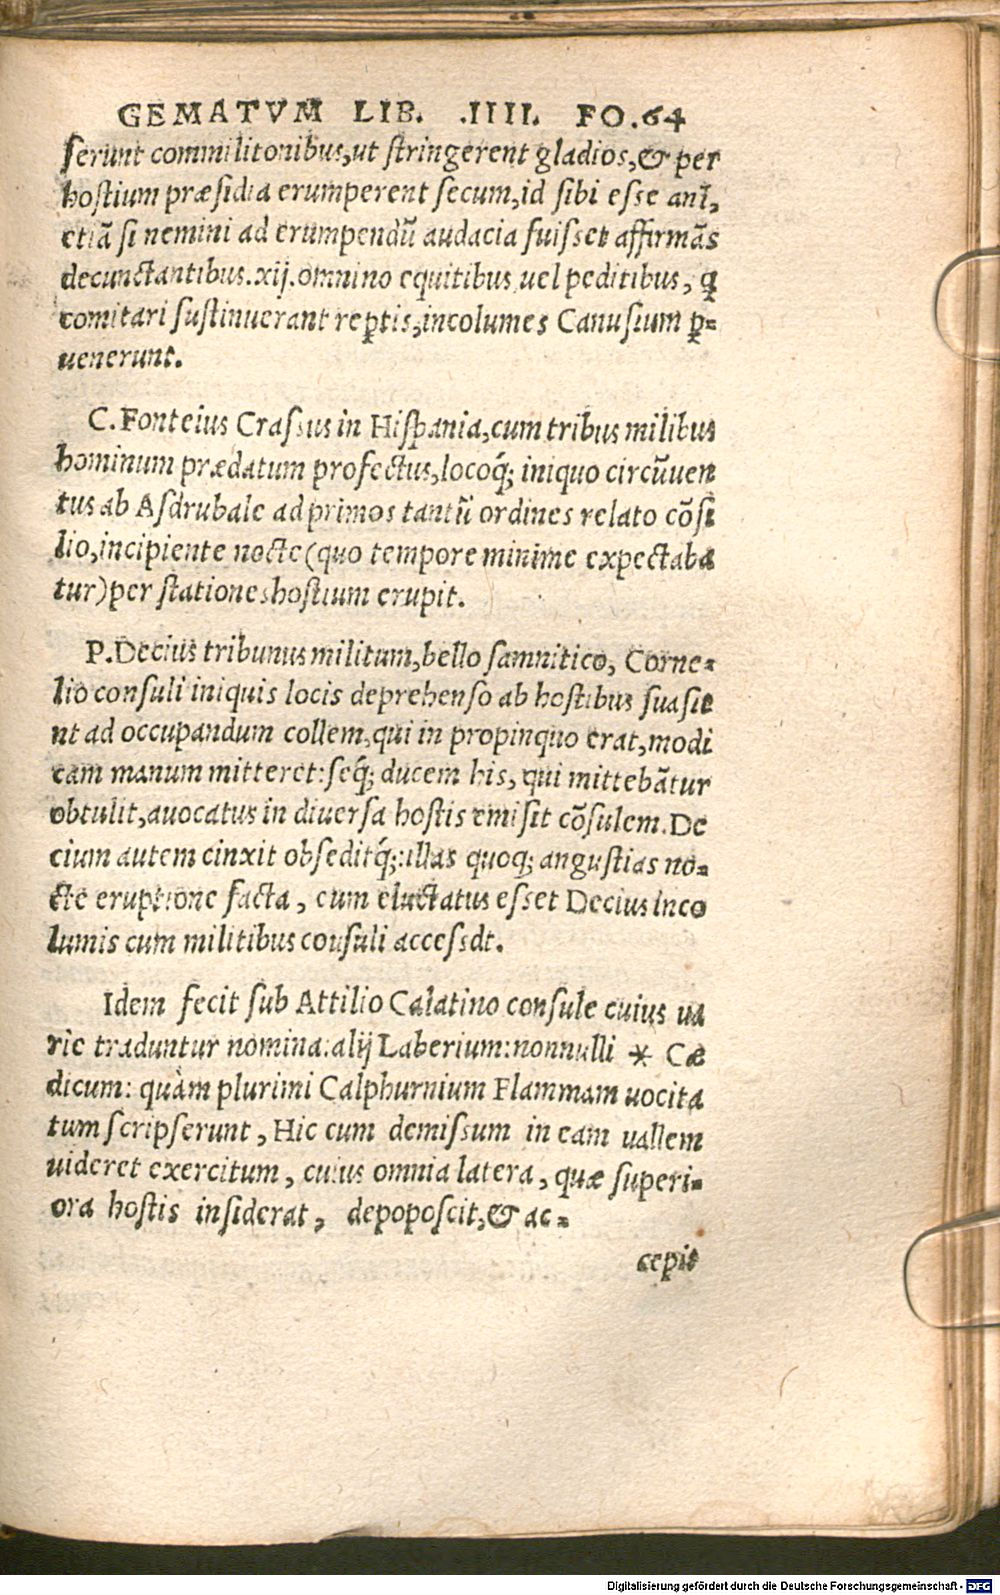 GEMATVM LIB. .IIII. FO.64
serunt commilitonibus,ut stringerent gladios,& per
hostium præsidia erumperent secum,id sibi esse anĩ,
etiã si nemini ad erumpendũ audacia fuisset affirmãs
decunctantibus.xij.omnino equitibus uel peditibus, q
comitari sustinuerant reptis,incolumes Canusium p-
uenerunt.
C.Fonteius Crassus in Hispania,cum tribus milibus
hominum prædatum profectus,locoq; iniquo circũuen
tus ab Asdrubale ad primos tantũ ordines relato cõsi
lio,incipiente nocte(quo tempore minime expectaba
tur)per stationes hostium erupit.
P.Decius tribunus militum,bello samnitico, Corne-
lio consuli iniquis locis deprehenso ab hostibus suasit
nt ad occupandum collem,qui in propinquo erat,modi
cam manum mitteret:seq; ducem his, qui mittebãtur
obtulit,auocatus in diuersa hostis emisit cõsulem.De
cium autem cinxit obseditq;:illas quoq; angustias no-
cte eruptione facta, cum eluctatus esset Decius inco
lumis cum militibus consuli accessdt.
Idem fecit sub Attilio Calatino consule cuius ua
rie traduntur nomina:alij Laberium:nonnulli * Cæ
dicum: quàm plurimi Calphurnium Flammam uocita
tum scripserunt, Hic cum demissum in eam uallem
uideret exercitum, cuius omnia latera, quæ superi-
ora hostis insiderat, depoposcit,& ac-
cepit
Digitalisierung gefördert durch die Deutsche Forschungsgemeinschaft - DFG